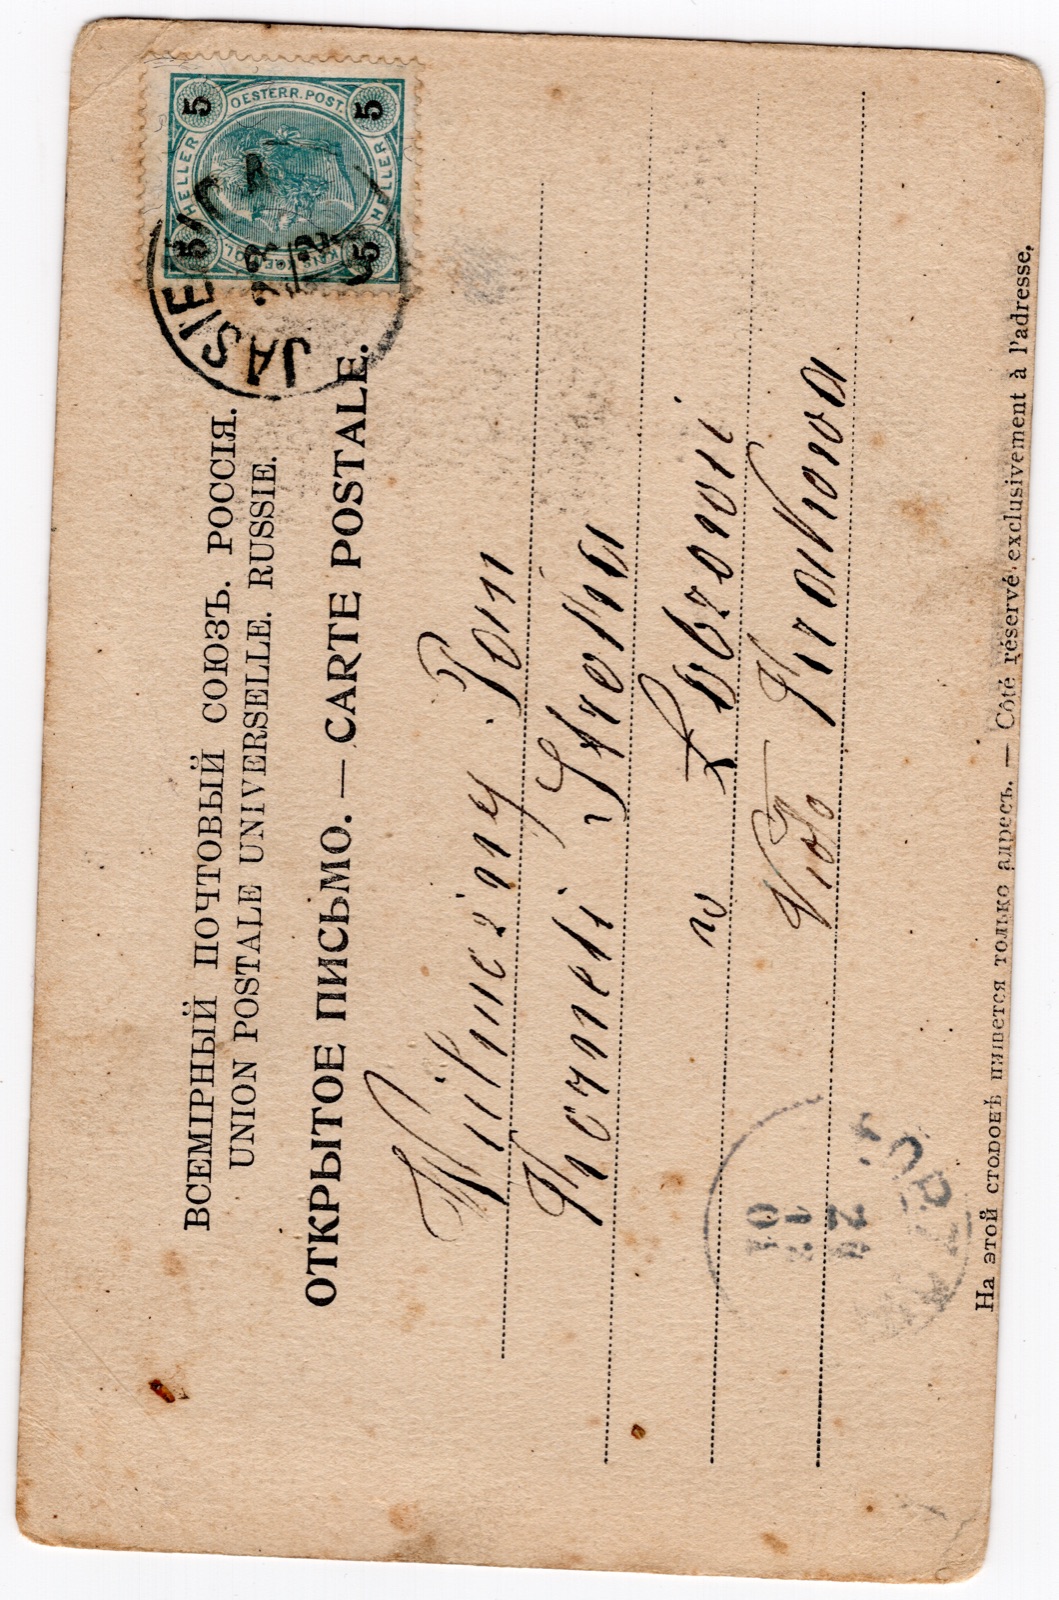 ВСЕМІРНЫЙ ПОЧТОВЫЙ СОЮЗЪ. РОССІЯ.
UNION POSTALE UNIVERSELLE. RUSSIE.
ОТКРЫТОЕ ПИСЬМО. — CARTE POSTALE.
5 OESTERR. POST. 5
HELLER HELLER
5 5
JASIE
Wilmożny Pan
Korneli Stroka
w Łobzowi
Krakowa
20
12
01
На этой сторонѣ пишется только адресъ. — Côté réservé exclusivement à l'adresse.